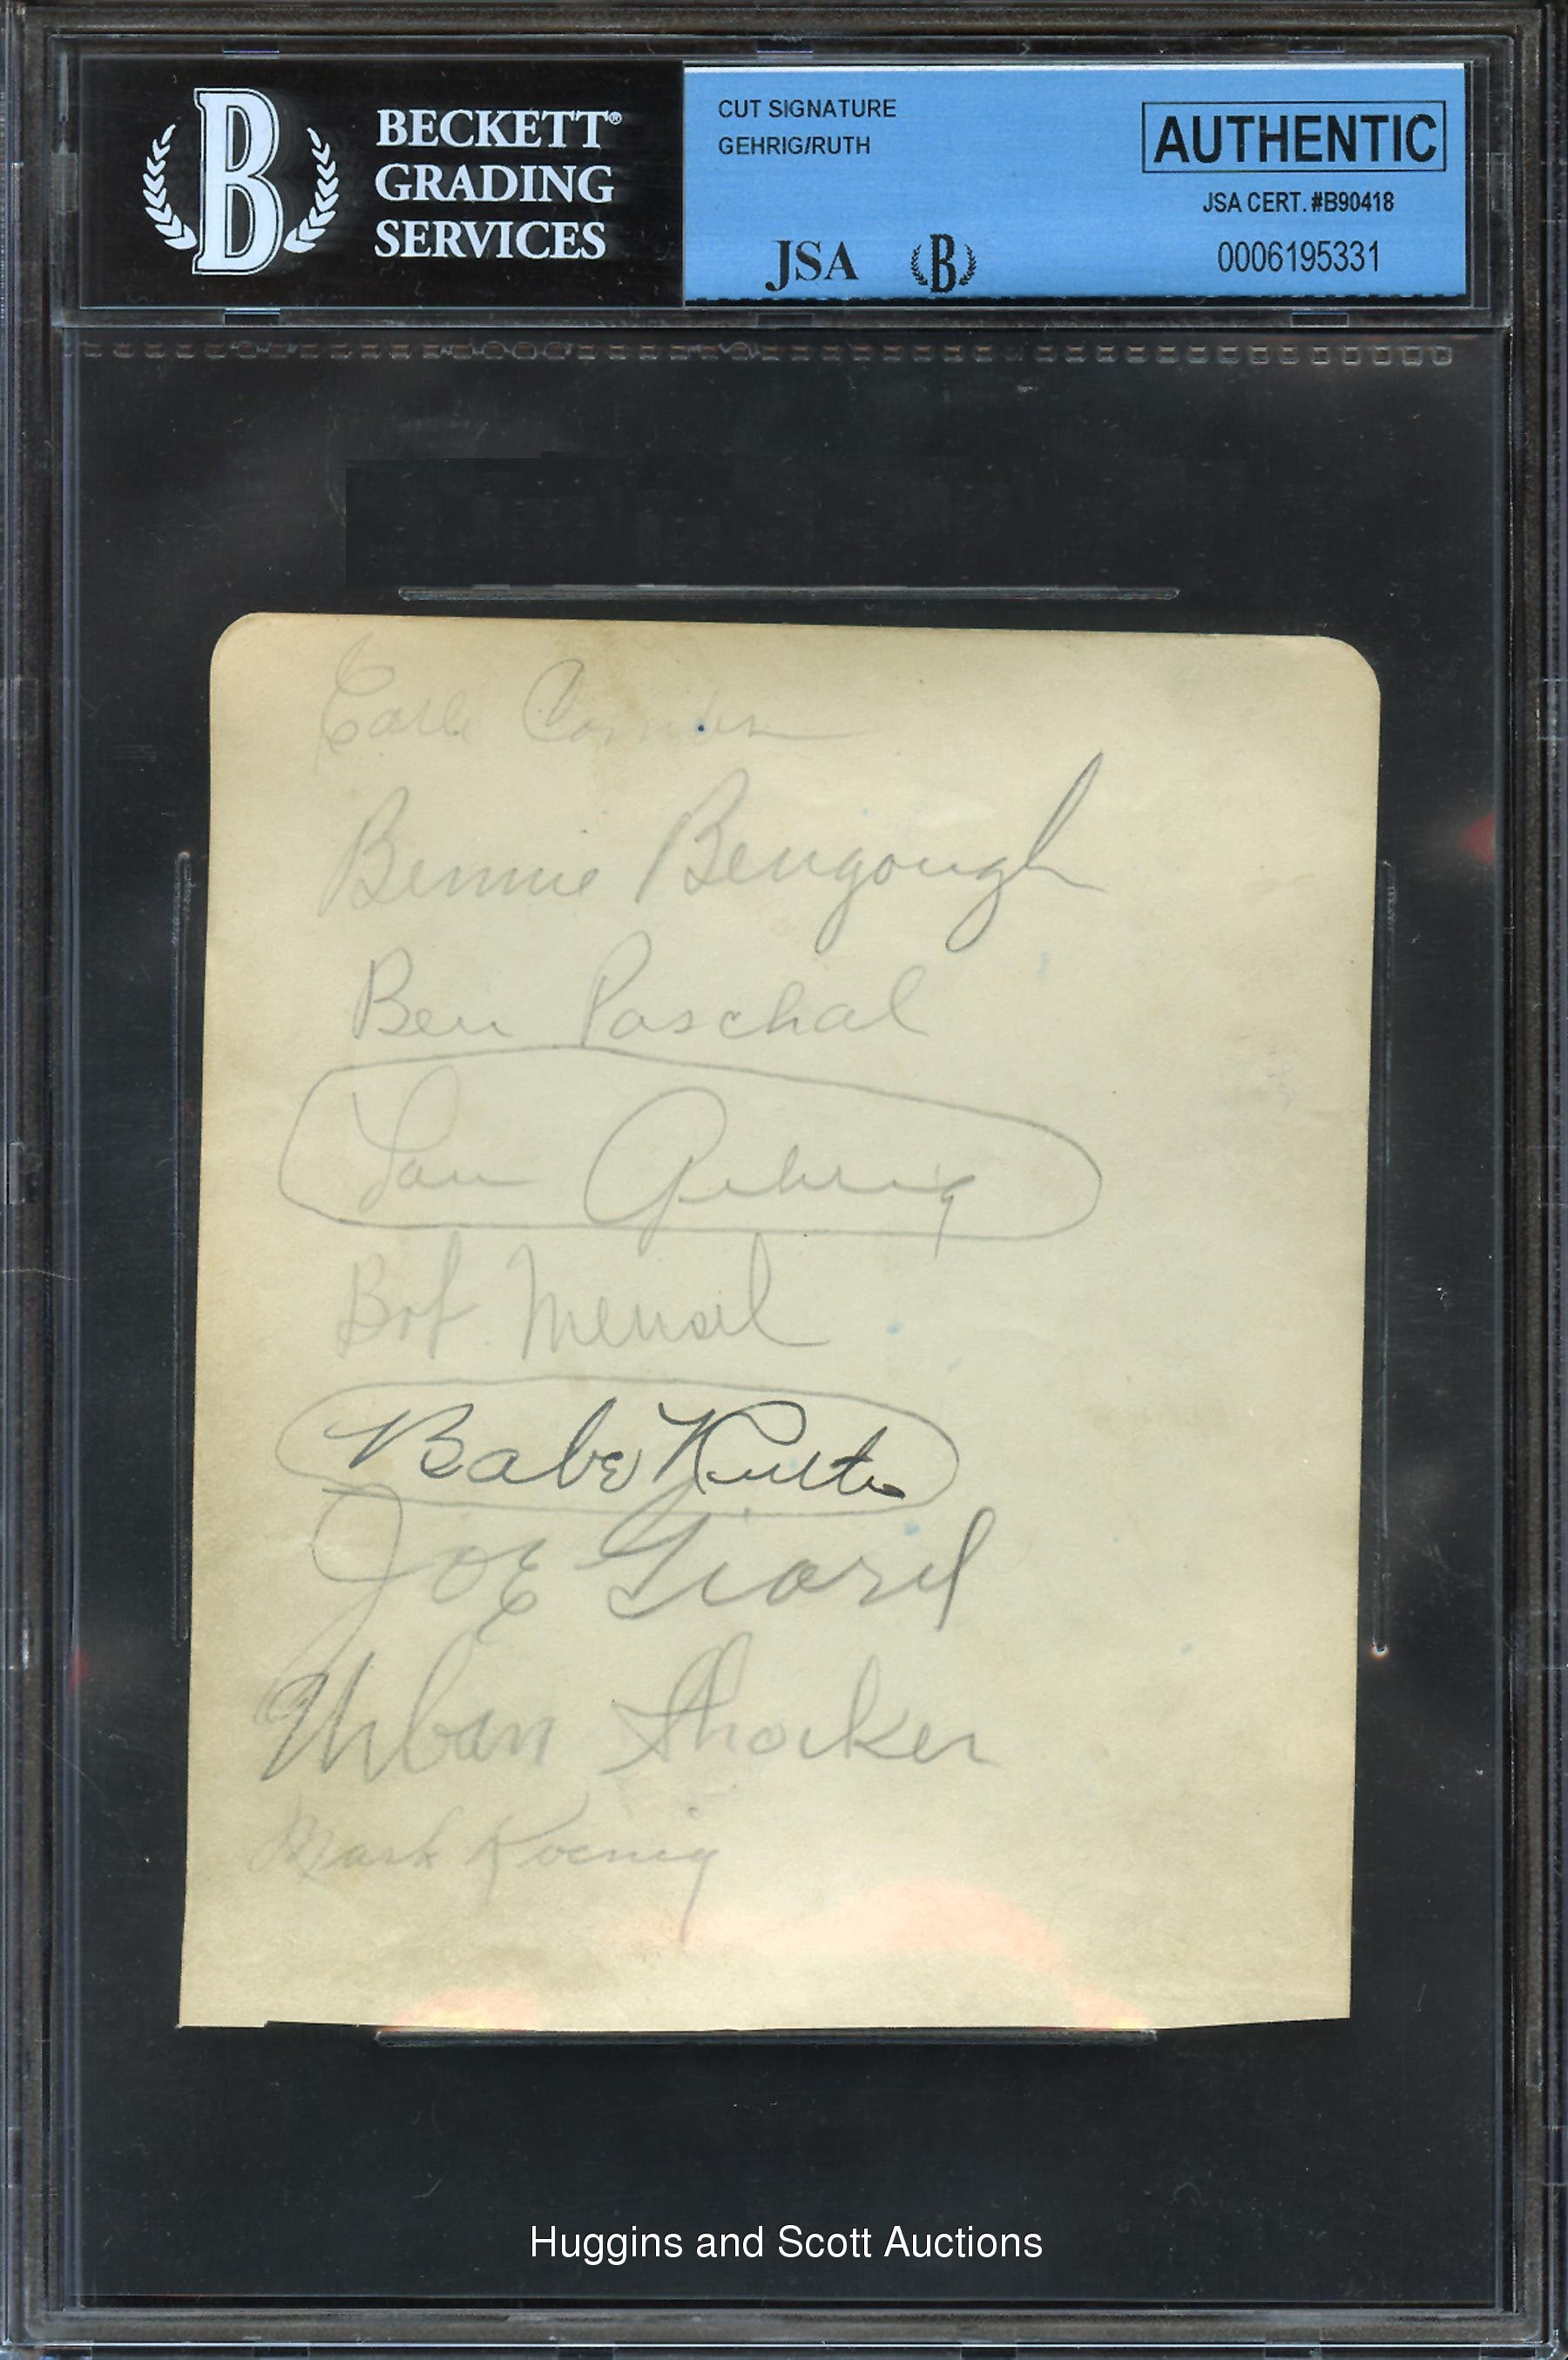 BECKETT®
GRADING
SERVICES
B
CUT SIGNATURE
GEHRIG/RUTH
AUTHENTIC
JSA CERT. #B90418
0006195331
JSA B
Earle Combs
Bennie Bengough
Ben Paschal
Lou Gehrig
Bob Meusel
Babe Ruth
Joe Giard
Urban Shocker
Mark Koenig
Huggins and Scott Auctions